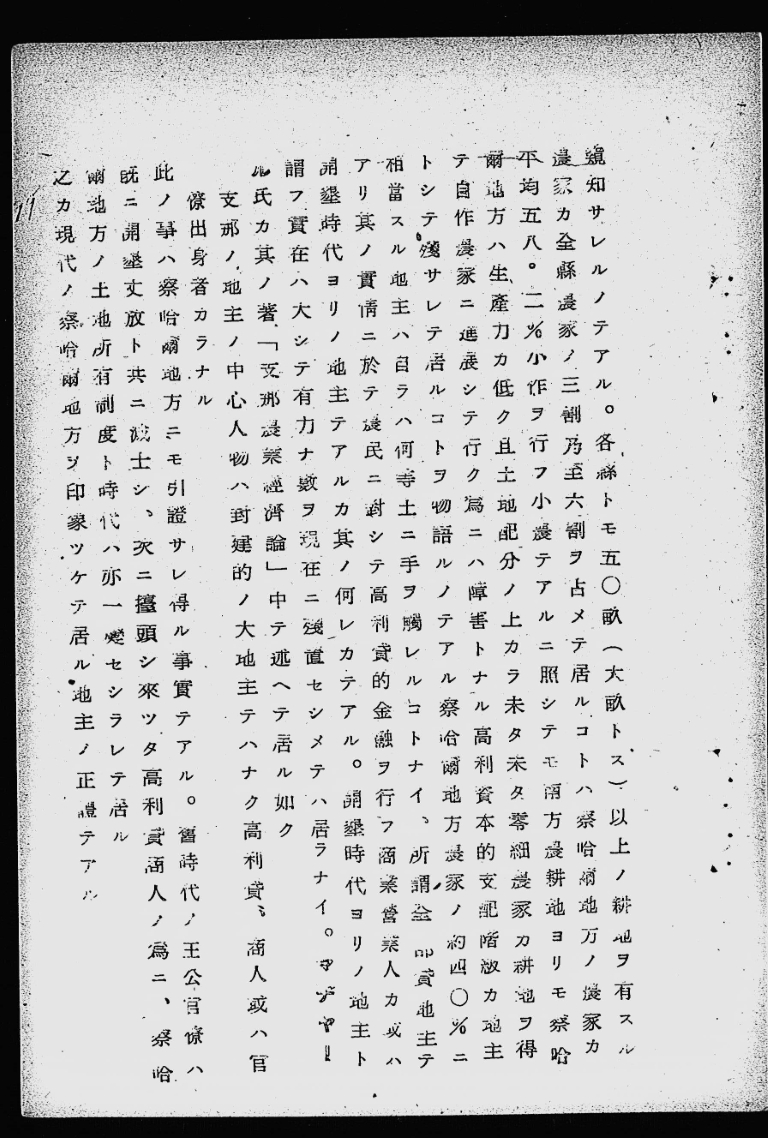 窺知サレルノテアル。各縣トモ五〇畝(大畝トス)以上ノ耕地ヲ有スル
農家カ全縣農家ノ三割乃至六割ヲ占メテ居ルコトハ察哈爾地方ノ農家カ
平均五八。二%小作ヲ行フ小農テアルニ照シテモ南方農耕地ヨリモ察哈
爾地方ハ生產力カ低ク且土地配分ノ上カラ未タ未タ零細農家カ耕地ヲ得
テ自作農家ニ進展シテ行ク爲ニハ障害トナル高利資本的支配階級カ地主
トシテ殘サレテ居ルコトヲ物語ルノテアル察哈爾地方農家ノ約四〇%ニ
相當スル地主ハ自ラハ何等土ニ手ヲ觸レルコトナイ、所謂金 貸地主テ
アリ其ノ實情ニ於テ農民ニ對シテ高利貸的金融ヲ行フ商業營業人カ或ハ
開墾時代ヨリノ地主テアルカ其ノ何レカテアル。開墾時代ヨリノ地主ト
謂フ實在ハ大シテ有力ナ數ヲ現在ニ殘置セシメテハ居ラナイ。マヂヤー
ル氏カ其ノ著「支那農業經濟論」中テ述ヘテ居ル如ク
支那ノ地主ノ中心人物ハ封建的ノ大地主テハナク高利貸、商人或ハ官
僚出身者カラナル
此ノ事ハ察哈爾地方ニモ引證サレ得ル事實テアル。舊時代ノ王公官僚ハ
既ニ開墾丈放ト共ニ減士シ、次ニ擡頭シ來ツタ高利貸商人ノ爲ニ、察哈
爾地方ノ土地所有制度ト時代ハ亦一變セシラレテ居ル
之カ現代ノ察哈爾地方ヲ印象ツケテ居ル地主ノ正體テアル